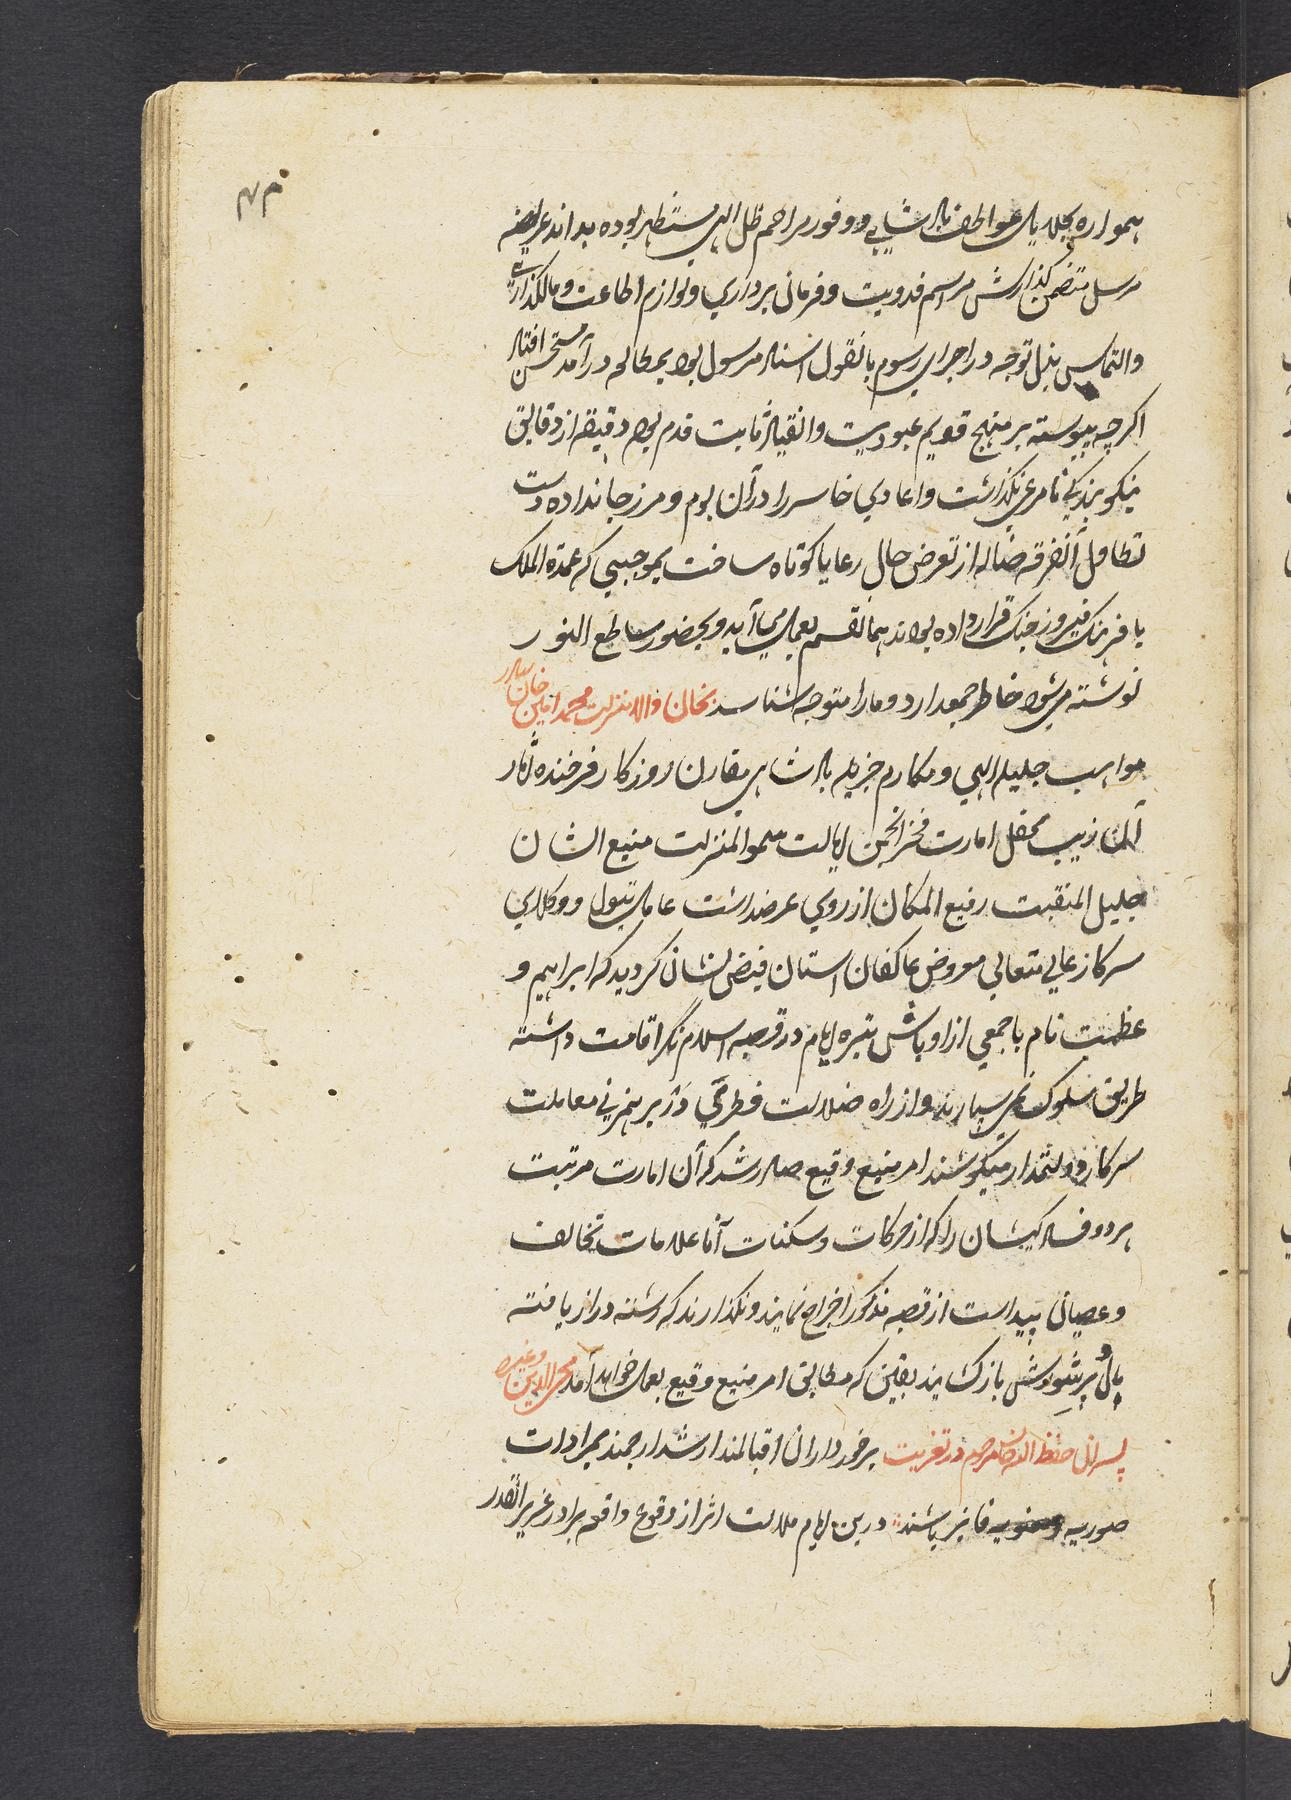 همواره بجلایل عواطف بادشاهی و وفور مراحم ظل الهی مستظهر بوده بداند عریضه
مرسل متضمن گذارش مراسم فدویت و فرمان برداری و لوازم اطاعت و مالگذاری
والتماس بذل توجه در اجرای رسوم بانقول اسناد مرسول بود بمطالعه درآمد مستحسن افتاد
اگرچه پیوسته بر منهج قویم عبودیت وانقیاد ثابت قدم بوده دقیقه از دقایق
نیکو بندگی نامرعی نگذاشت واعادی خاسر را در آن بوم و مرز جا نداده دست
تطاول آنفرقه ضاله از تعرض حال رعایا کوتاه ساخت بموجبی که عمدة الملک
با فرهنگ فیروز جنگ قرار داده بودند همانقسم بعمل می آید و بحضور ساطع النور
نوشته می شود خاطر جمع دارد و ما را متوجه شناسد بخان والا منزلت محمد امین خان بهادر
مواهب جلیله الهی و مکارم جزیله بادشاهی مقارن روزگار فرخنده آثار
آن زیب محفل امارت فخر انجمن ایالت سمو المنزلت منیع الشان
جلیل المنقبت رفیع المکان از روی عرضداشت عامل تیول و وکلای
سرکار عالی متعالی معروض عاکفان آستان فیض نشان گردید که ابراهیم و
عظمت نام با جمعی از اوباش تیره ایام در قصبه اسلام نگر اقامت داشته
طریق سلوک نمی سپارند و از راه ضلالت فطری در برهمزنی معاملت
سرکار دولتمدار میکوشند امر منیع وقیع صادر شد که آن امارت مرتبت
هر دو فساد کیشان را که از حرکات و سکنات آنها علامات تخالف
و عصیان پیداست از قصبه مذکور اخراج نمایند و نگذارند که رشته دراز یافته
پای بر شورش باز کشایند یقین که مطابق امر منیع وقیع بعمل خواهد آمد محی الدین وغیره
پسران حفظ الله خان مرحوم در تعزیت برخورداران اقبالمند ارشد ارجمند بمرادات
صوریه و معنویه فایز باشند درین ایام ملالت اثر از وقوع واقعه برادر عزیز القدر